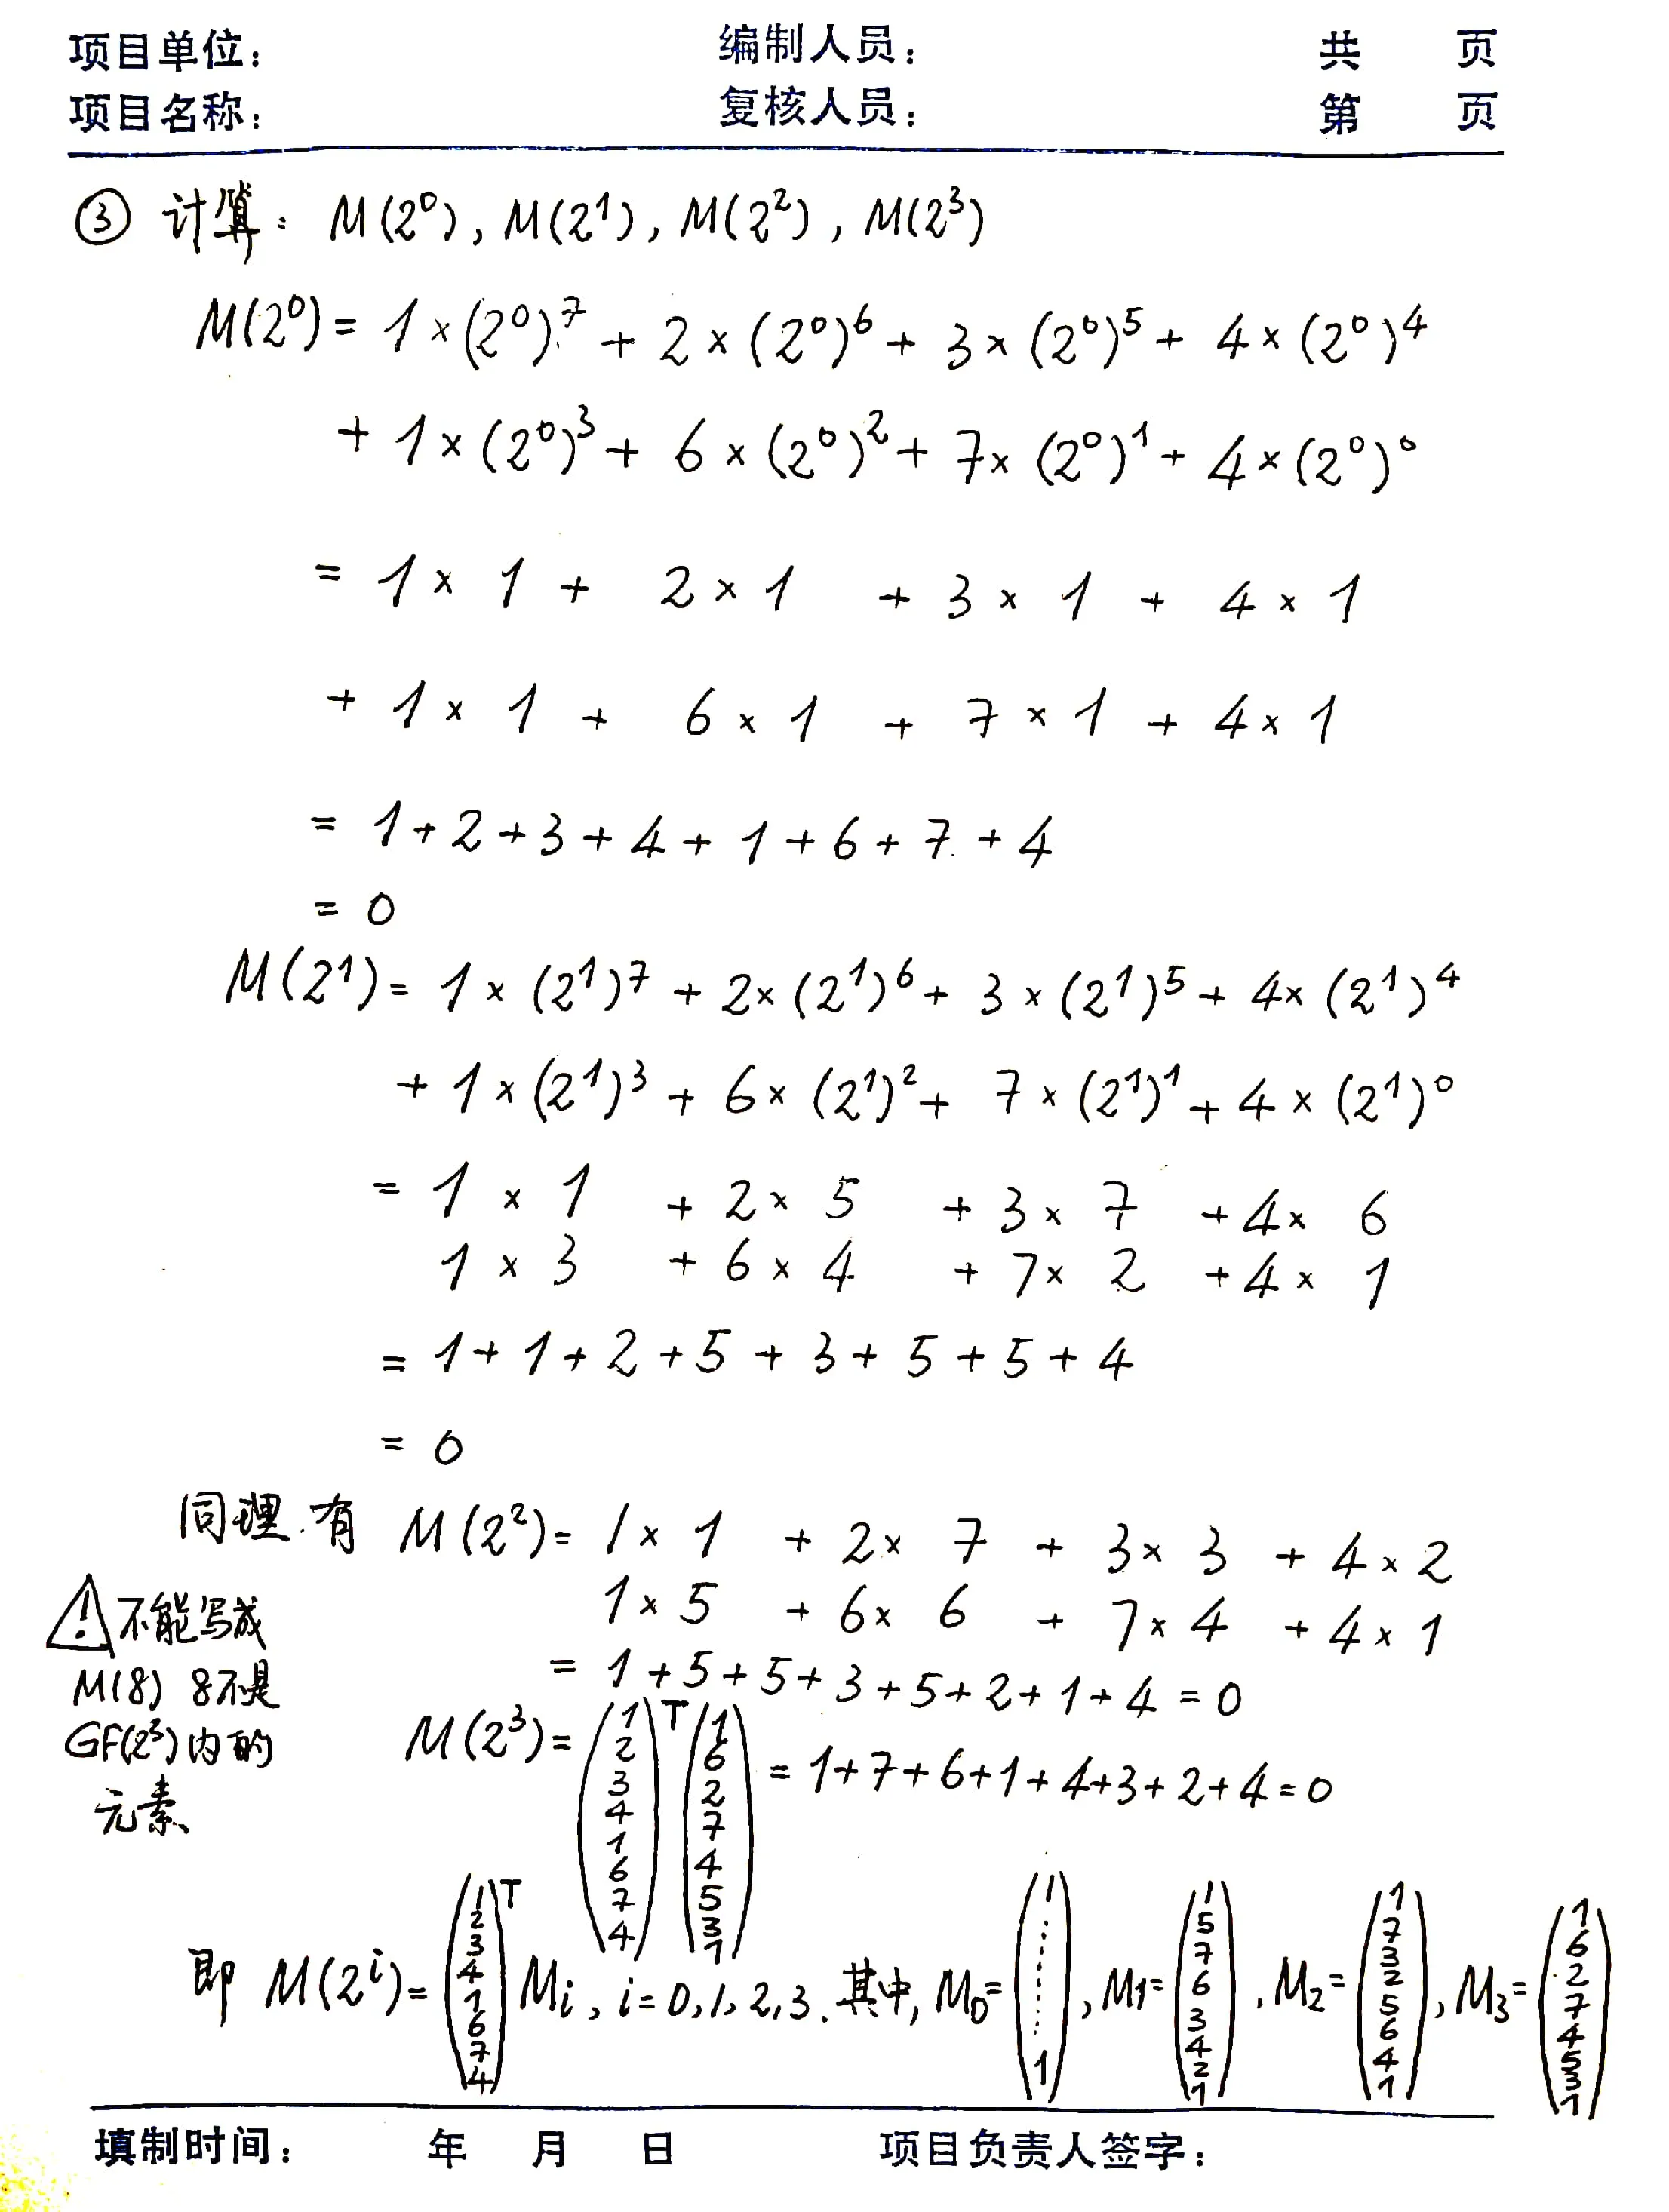 项目单位： 编制人员： 共 页
项目名称： 复核人员： 第 页
③ 计算: M(2⁰), M(2¹), M(2²), M(2³)
M(2⁰) = 1×(2⁰)⁷ + 2×(2⁰)⁶ + 3×(2⁰)⁵ + 4×(2⁰)⁴
+ 1×(2⁰)³ + 6×(2⁰)² + 7×(2⁰)¹ + 4×(2⁰)⁰
= 1×1 + 2×1 + 3×1 + 4×1
+ 1×1 + 6×1 + 7×1 + 4×1
= 1+2+3+4+1+6+7+4
= 0
M(2¹) = 1×(2¹)⁷ + 2×(2¹)⁶ + 3×(2¹)⁵ + 4×(2¹)⁴
+ 1×(2¹)³ + 6×(2¹)² + 7×(2¹)¹ + 4×(2¹)⁰
= 1×1 + 2×5 + 3×7 + 4×6
1×3 + 6×4 + 7×2 + 4×1
= 1+1+2+5+3+5+5+4
= 0
同理.有 M(2²) = 1×1 + 2×7 + 3×3 + 4×2
1×5 + 6×6 + 7×4 + 4×1
= 1+5+5+3+5+2+1+4 = 0
⚠不能写成
M(8) 8不是
GF(2³)内的
元素、
M(2³) = (1 2 3 4 1 6 7 4)ᵀ (1 6 2 7 4 5 3 1) = 1+7+6+1+4+3+2+4 = 0
即 M(2ⁱ) = (1 2 3 4 1 6 7 4)ᵀ Mi, i=0,1,2,3. 其中, M₀=(1 ⋮ 1), M1=(1 5 7 6 3 4 2 1), M₂=(1 7 3 2 5 6 4 1), M₃=(1 6 2 7 4 5 3 1)
填制时间： 年 月 日 项目负责人签字：